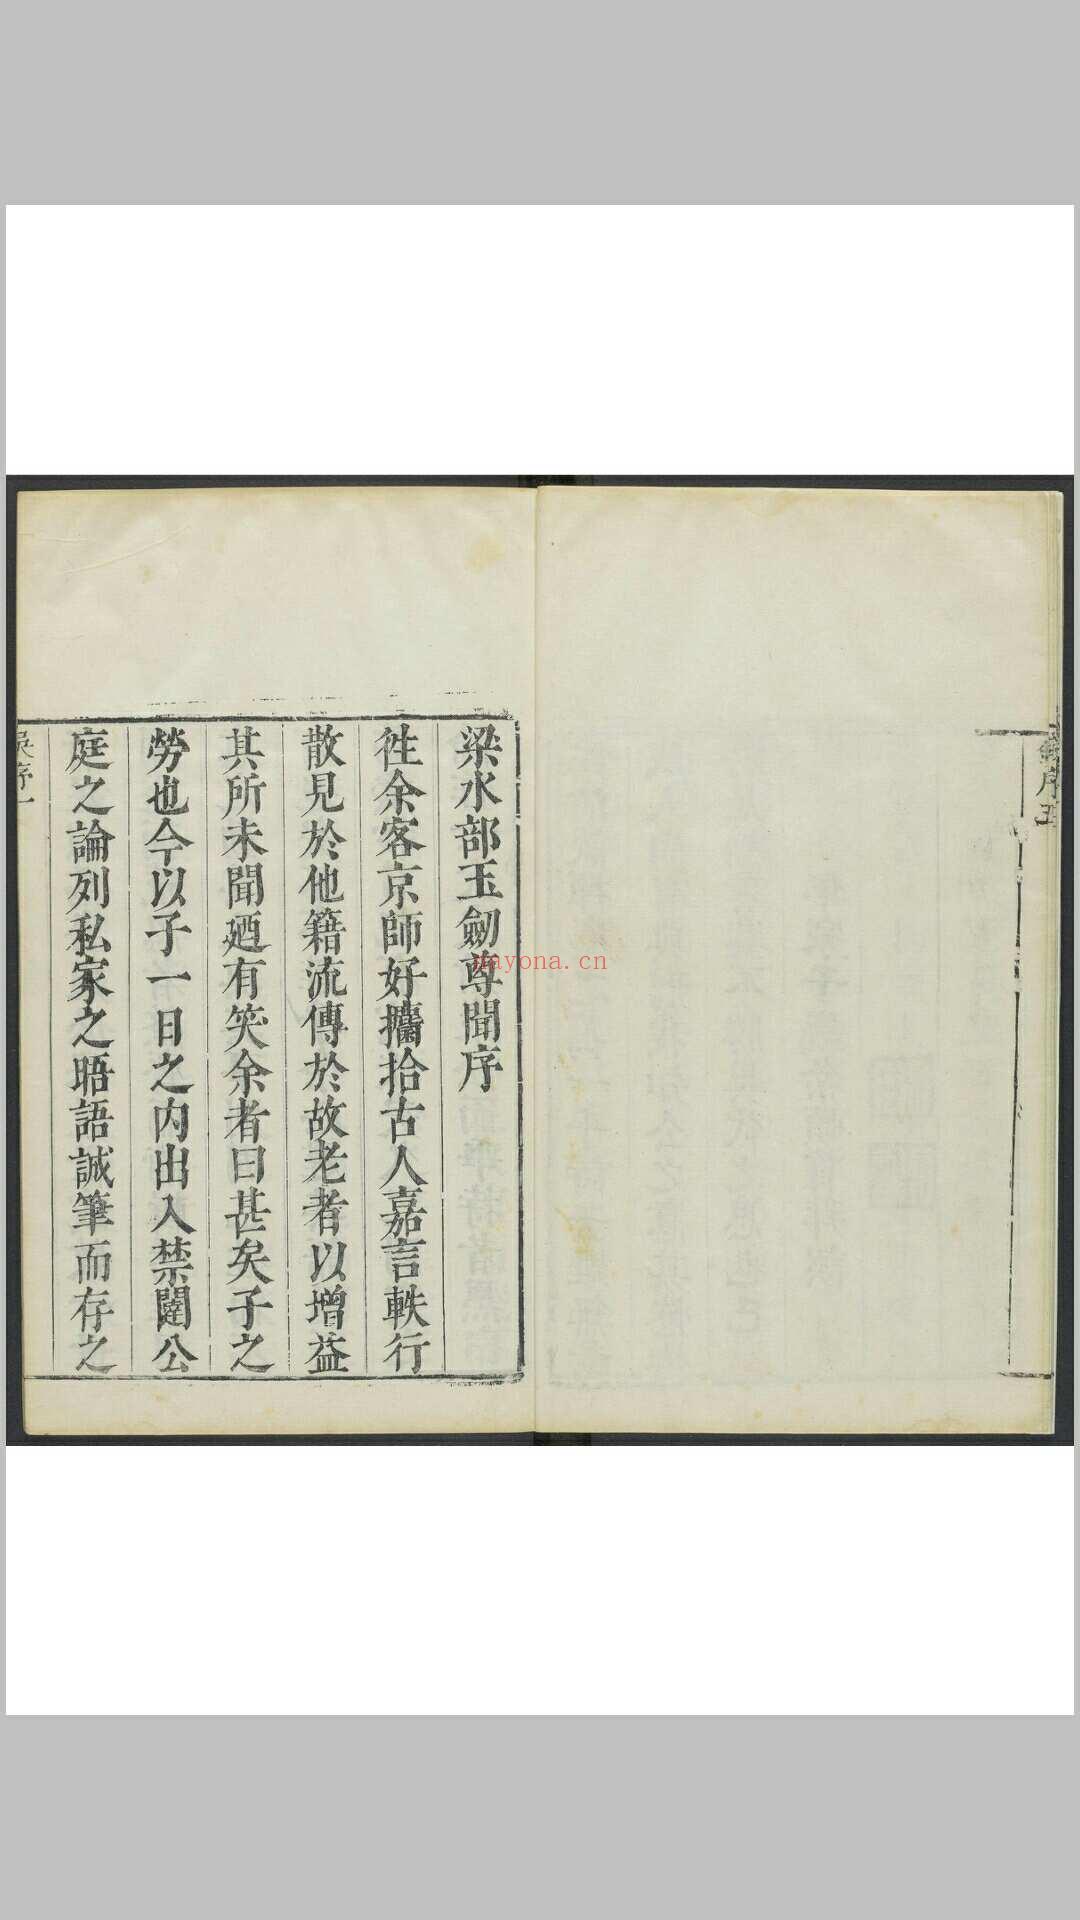 錢序五
梁水部玉劒尊聞序
徃余客京師好攟拾古人嘉言軼行
散見於他籍流傳於故老者以增益
其所未聞廼有笑余者曰甚矣子之
勞也今以子一日之內出入禁闥公
庭之論列私家之晤語誠筆而存之
吳序一
nayona.cn